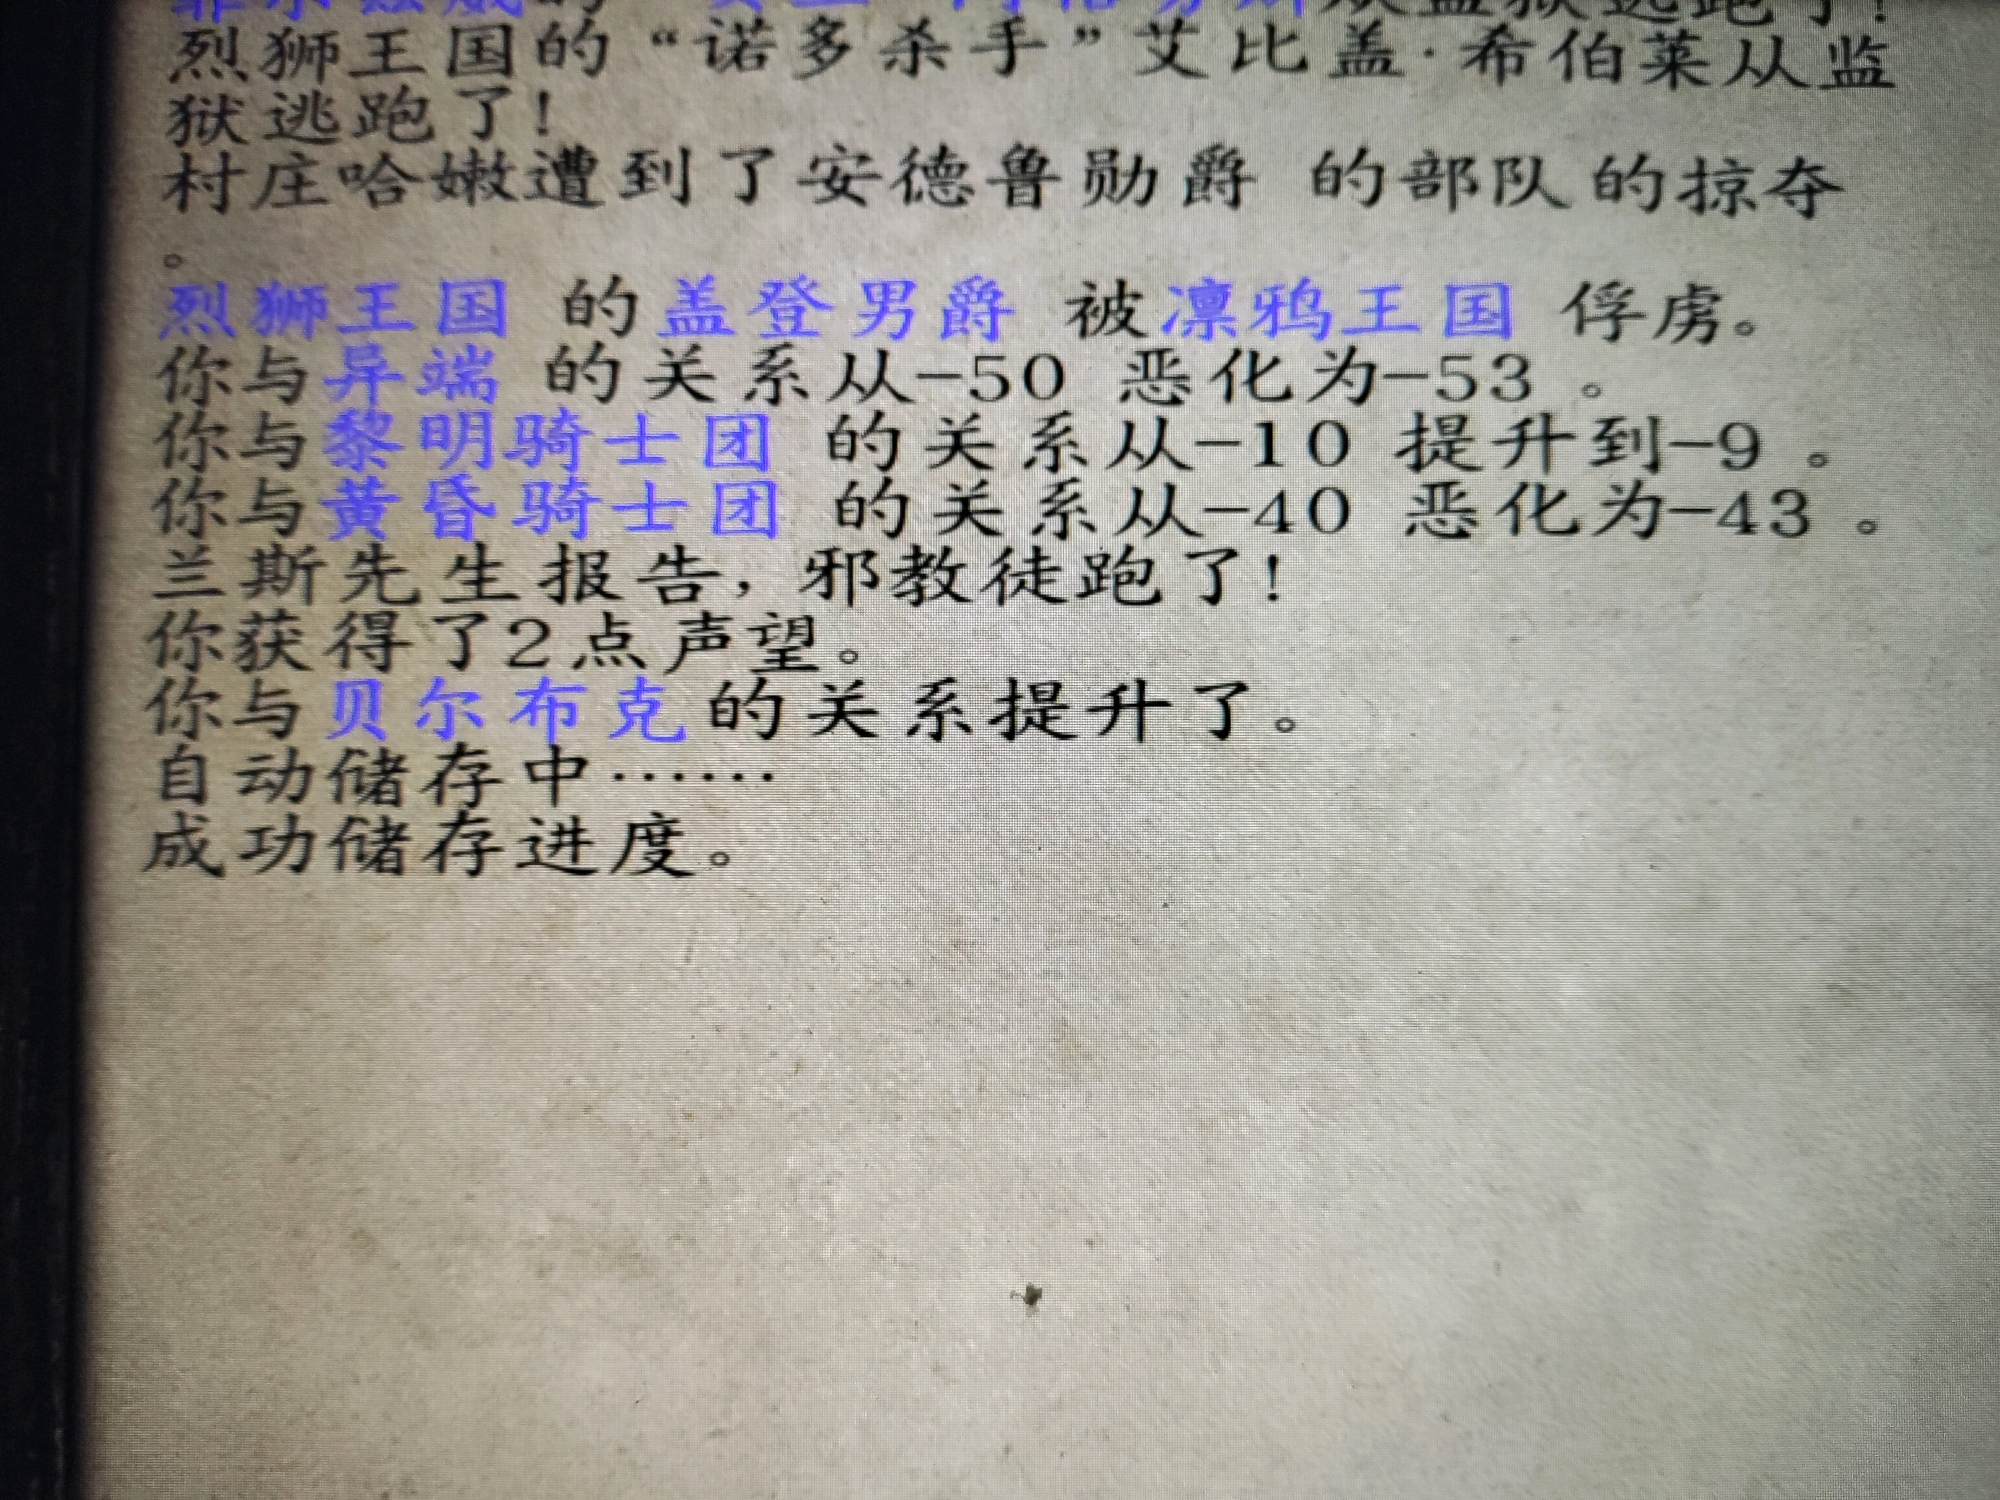 从监狱逃跑了!
烈狮王国的“诺多杀手”艾比盖·希伯莱从监
狱逃跑了!
村庄哈嫩遭到了安德鲁勋爵 的部队的掠夺
。
烈狮王国 的盖登男爵 被凛鸦王国 俘虏。
你与异端 的关系从-50 恶化为-53 。
你与黎明骑士团 的关系从-10 提升到-9 。
你与黄昏骑士团 的关系从-40 恶化为-43 。
兰斯先生报告,邪教徒跑了!
你获得了2点声望。
你与贝尔布克的关系提升了。
自动储存中……
成功储存进度。